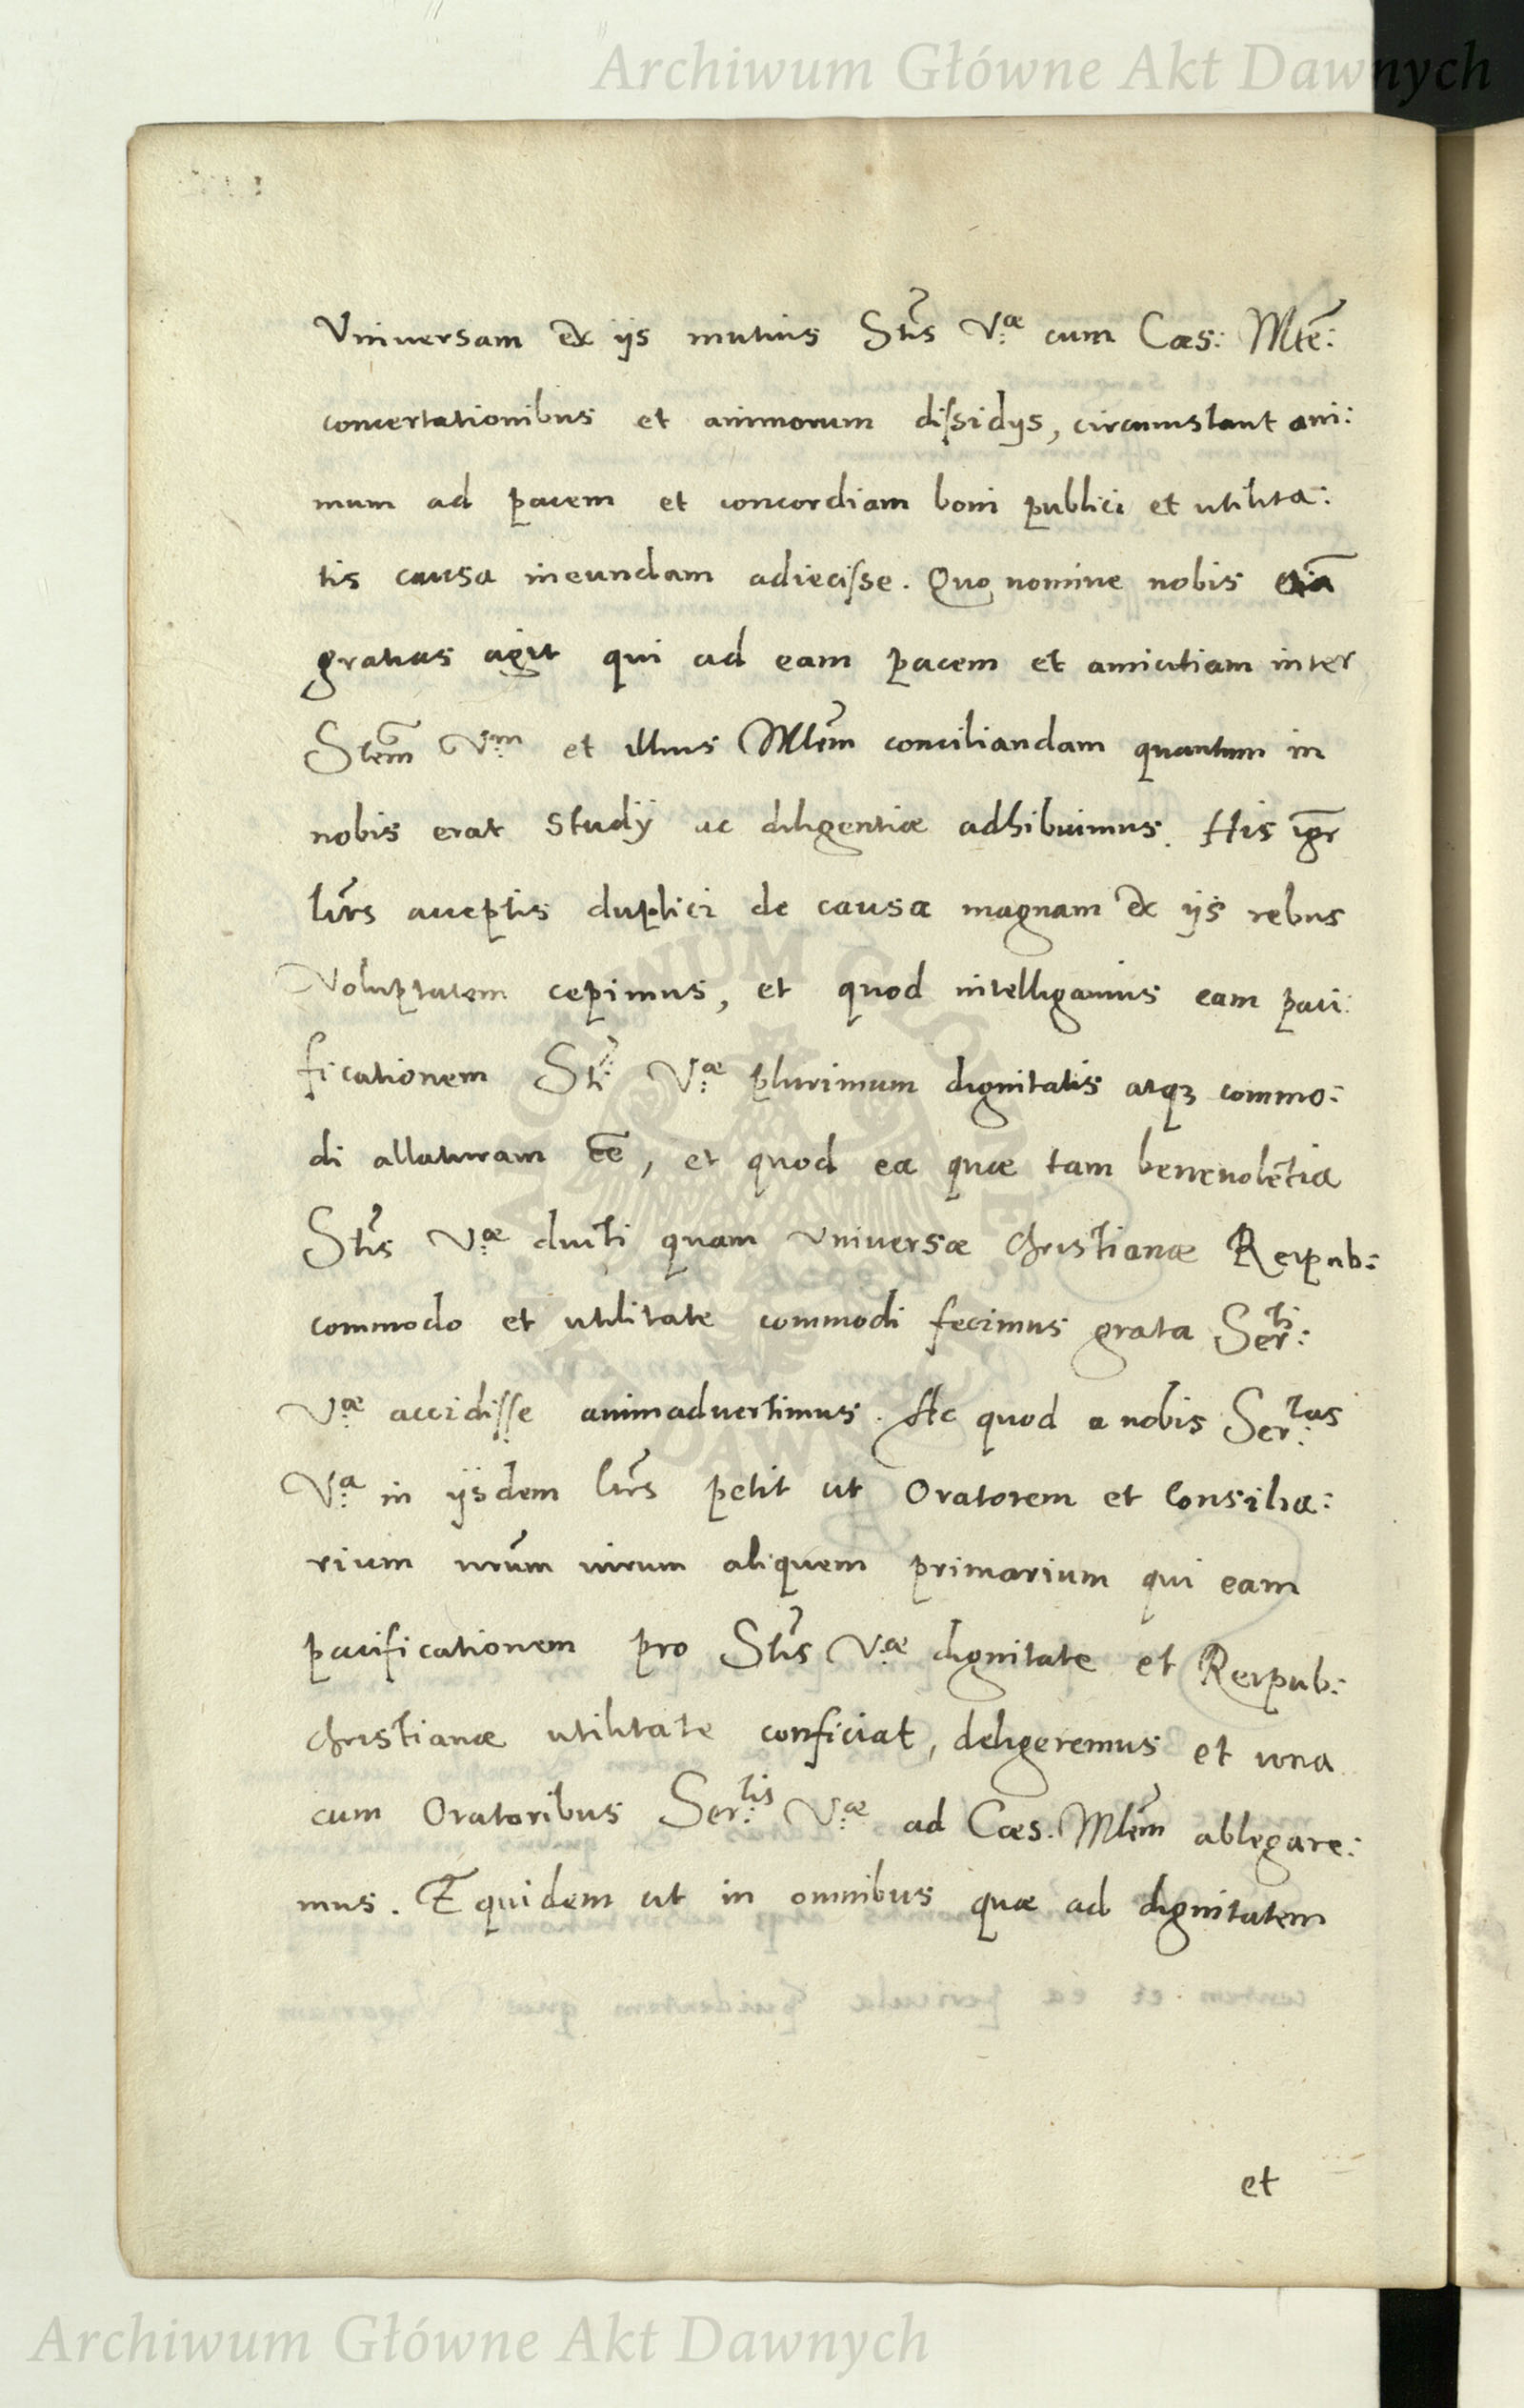 Archiwum Główne Akt Dawnych
Vniuersam ex ijs mutuis Stis V.æ cum Cæs: Mte:
concertationibus et animorum dissidijs, circumstant ani:
mum ad pacem et concordiam boni publici et utilita:
tis causa ineundam adiecisse. Quo nomine nobis etiā
gratias agit qui ad eam pacem et amicitiam inter
Stem V.m et illius Mtem conciliandam quantum in
nobis erat studij ac diligentiæ adhibuimus. His igr
lrīs acceptis duplici de causa magnam ex ijs rebus
Voluptatem cepimus, et quod intelligamus eam paci:
ficationem Sti V.æ plurimum dignitatis atqȝ commo:
di allaturam eē, et quod ea quæ tam beneuolētia
Stis V.æ ducti quam vniuersæ christianæ Reipub:
commodo et utilitate commodi fecimus grata Ser:ti
V.æ accidisse animaduertimus. Ac quod a nobis Ser:tas
V.a in ijsdem lrīs petit ut Oratorem et Consilia:
rium nrūm uirum aliquem primarium qui eam
pacificationem pro Stis V.æ dignitate et Reipub:
christianæ utilitate conficiat, deligeremus et una
cum Oratoribus Ser:tis V.æ ad Cæs. Mtem ablegare:
mus. Equidem ut in omnibus quæ ad dignitatem
et
ARCHIWUM GŁÓWNE AKT DAWNYCH
Archiwum Główne Akt Dawnych